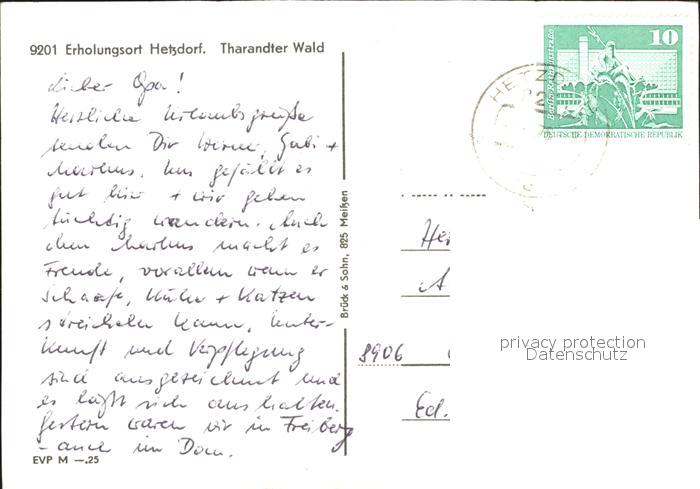 9201 Erholungsort Hetzdorf. Tharandter Wald
10
Berlin-Rathausstraße
DEUTSCHE DEMOKRATISCHE REPUBLIK
HETZD
Lieber Opa!
Herzliche Urlaubsgrüße
senden Dir Werner, Gabi +
Markus. Uns gefällt es
gut hier + wir gehen
tüchtig wandern. Auch
dem Markus macht es
Freude, vorallem wenn er
Schaafe, Kühe + Katzen
streicheln kann. Unter-
kunft und Verpflegung
sind ausgezeichnet und
es läßt sich aushalten.
Gestern waren wir in Freiberg
- auch im Dom.
EVP M —.25
Brück & Sohn, 825 Meißen
Her
A
8906
Ed.
privacy protection
Datenschutz